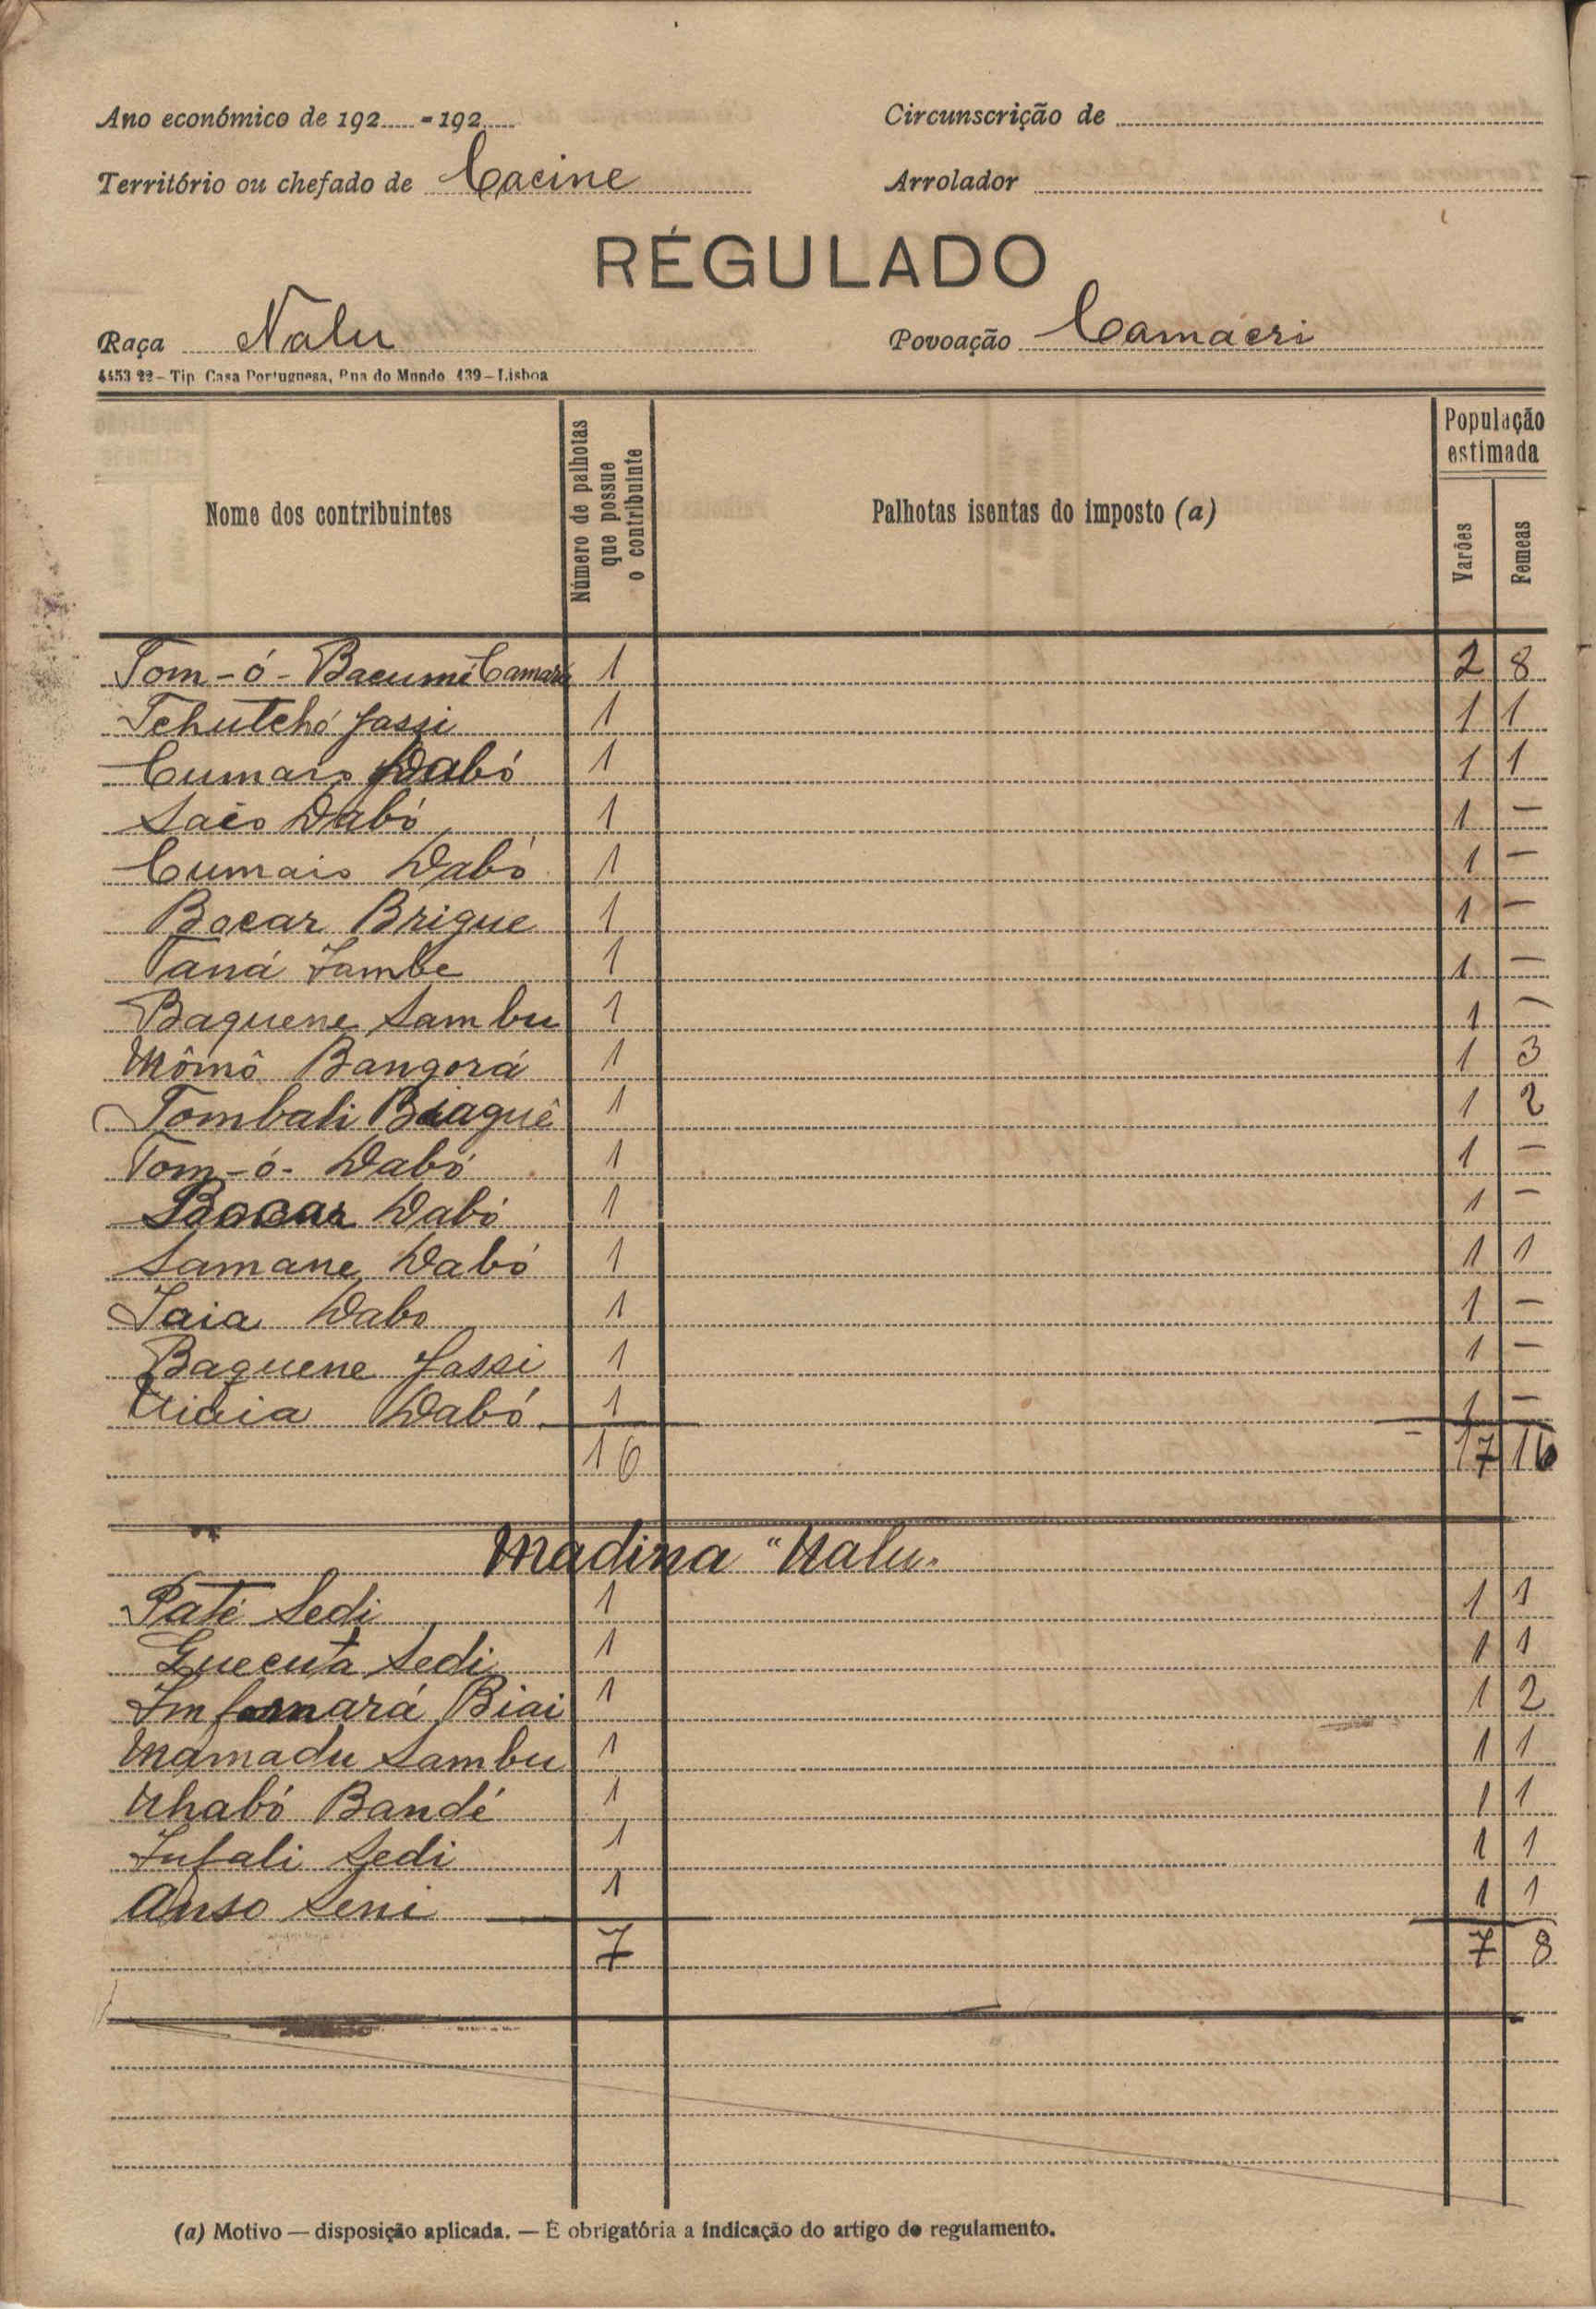 Ano económico de 192..... - 192..... Circunscrição de
Território ou chefado de Cacine Arrolador
RÉGULADO
Raça Nalu Povoação Camacri
4453 22 – Tip. Casa Portuguesa, Rua do Mundo, 139 – Lisboa
Nome dos contribuintes Número de palhotas que possue o contribuinte Palhotas isentas do imposto (a) População estimada Varões Femeas
Tom-ó-Bacumé Camará 1 2 8
Tchutchó Jassi 1 1 1
Cumais Dabó 1 1 1
Saio Dabó 1 1 –
Cumais Dabó 1 1 –
Bocar Brigue 1 1 –
Taná Jambe 1 1 –
Baquene Sambu 1 1 –
Mômô Bangorá 1 1 3
Tombali Biaguê 1 1 2
Tom-ó- Dabó 1 1 –
Bocar Dabó 1 1 –
Samane Dabó 1 1 1
Iaia Dabo 1 1 –
Baquene Jassi 1 1 –
Dabó 1 1 –
16 17 16
Madina "Nalu"
Paté Sedi 1 1 1
Quecuta Sedi 1 1 1
Biai 1 1 2
Mamadu Sambu 1 1 1
Nhabó Bandé 1 1 1
Infali Sedi 1 1 1
Anso Seni 1 1 1
7 7 8
(a) Motivo — disposição aplicada. — É obrigatória a indicação do artigo do regulamento.